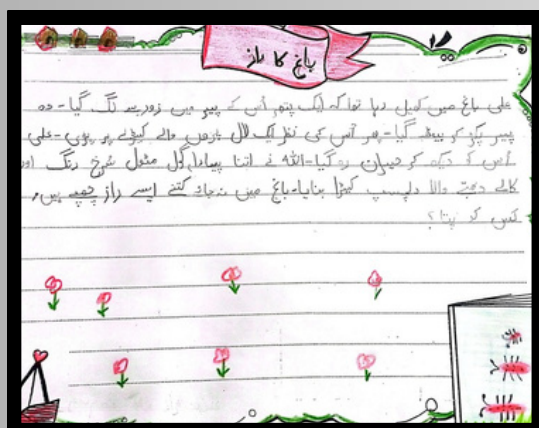 باغ کا راز
علی باغ میں کھیل رہا تھا کہ ایک پتھر اُس کے پیر میں زور سے لگ گیا - وہ
پیر پکڑ کر بیٹھ گیا - پھر اُس کی نظر ایک لال پروں والے کیڑے پر پڑی - علی
اُس کو دیکھ کر حیران رہ گیا - اللہ نے اتنا پیارا، گول مٹول سُرخ رنگ اور
کالے دھبّے والا دلچسپ کیڑا بنایا۔ باغ میں نہ جانے کتنے ایسے راز چھپے ہیں،
کس کو پتا؟